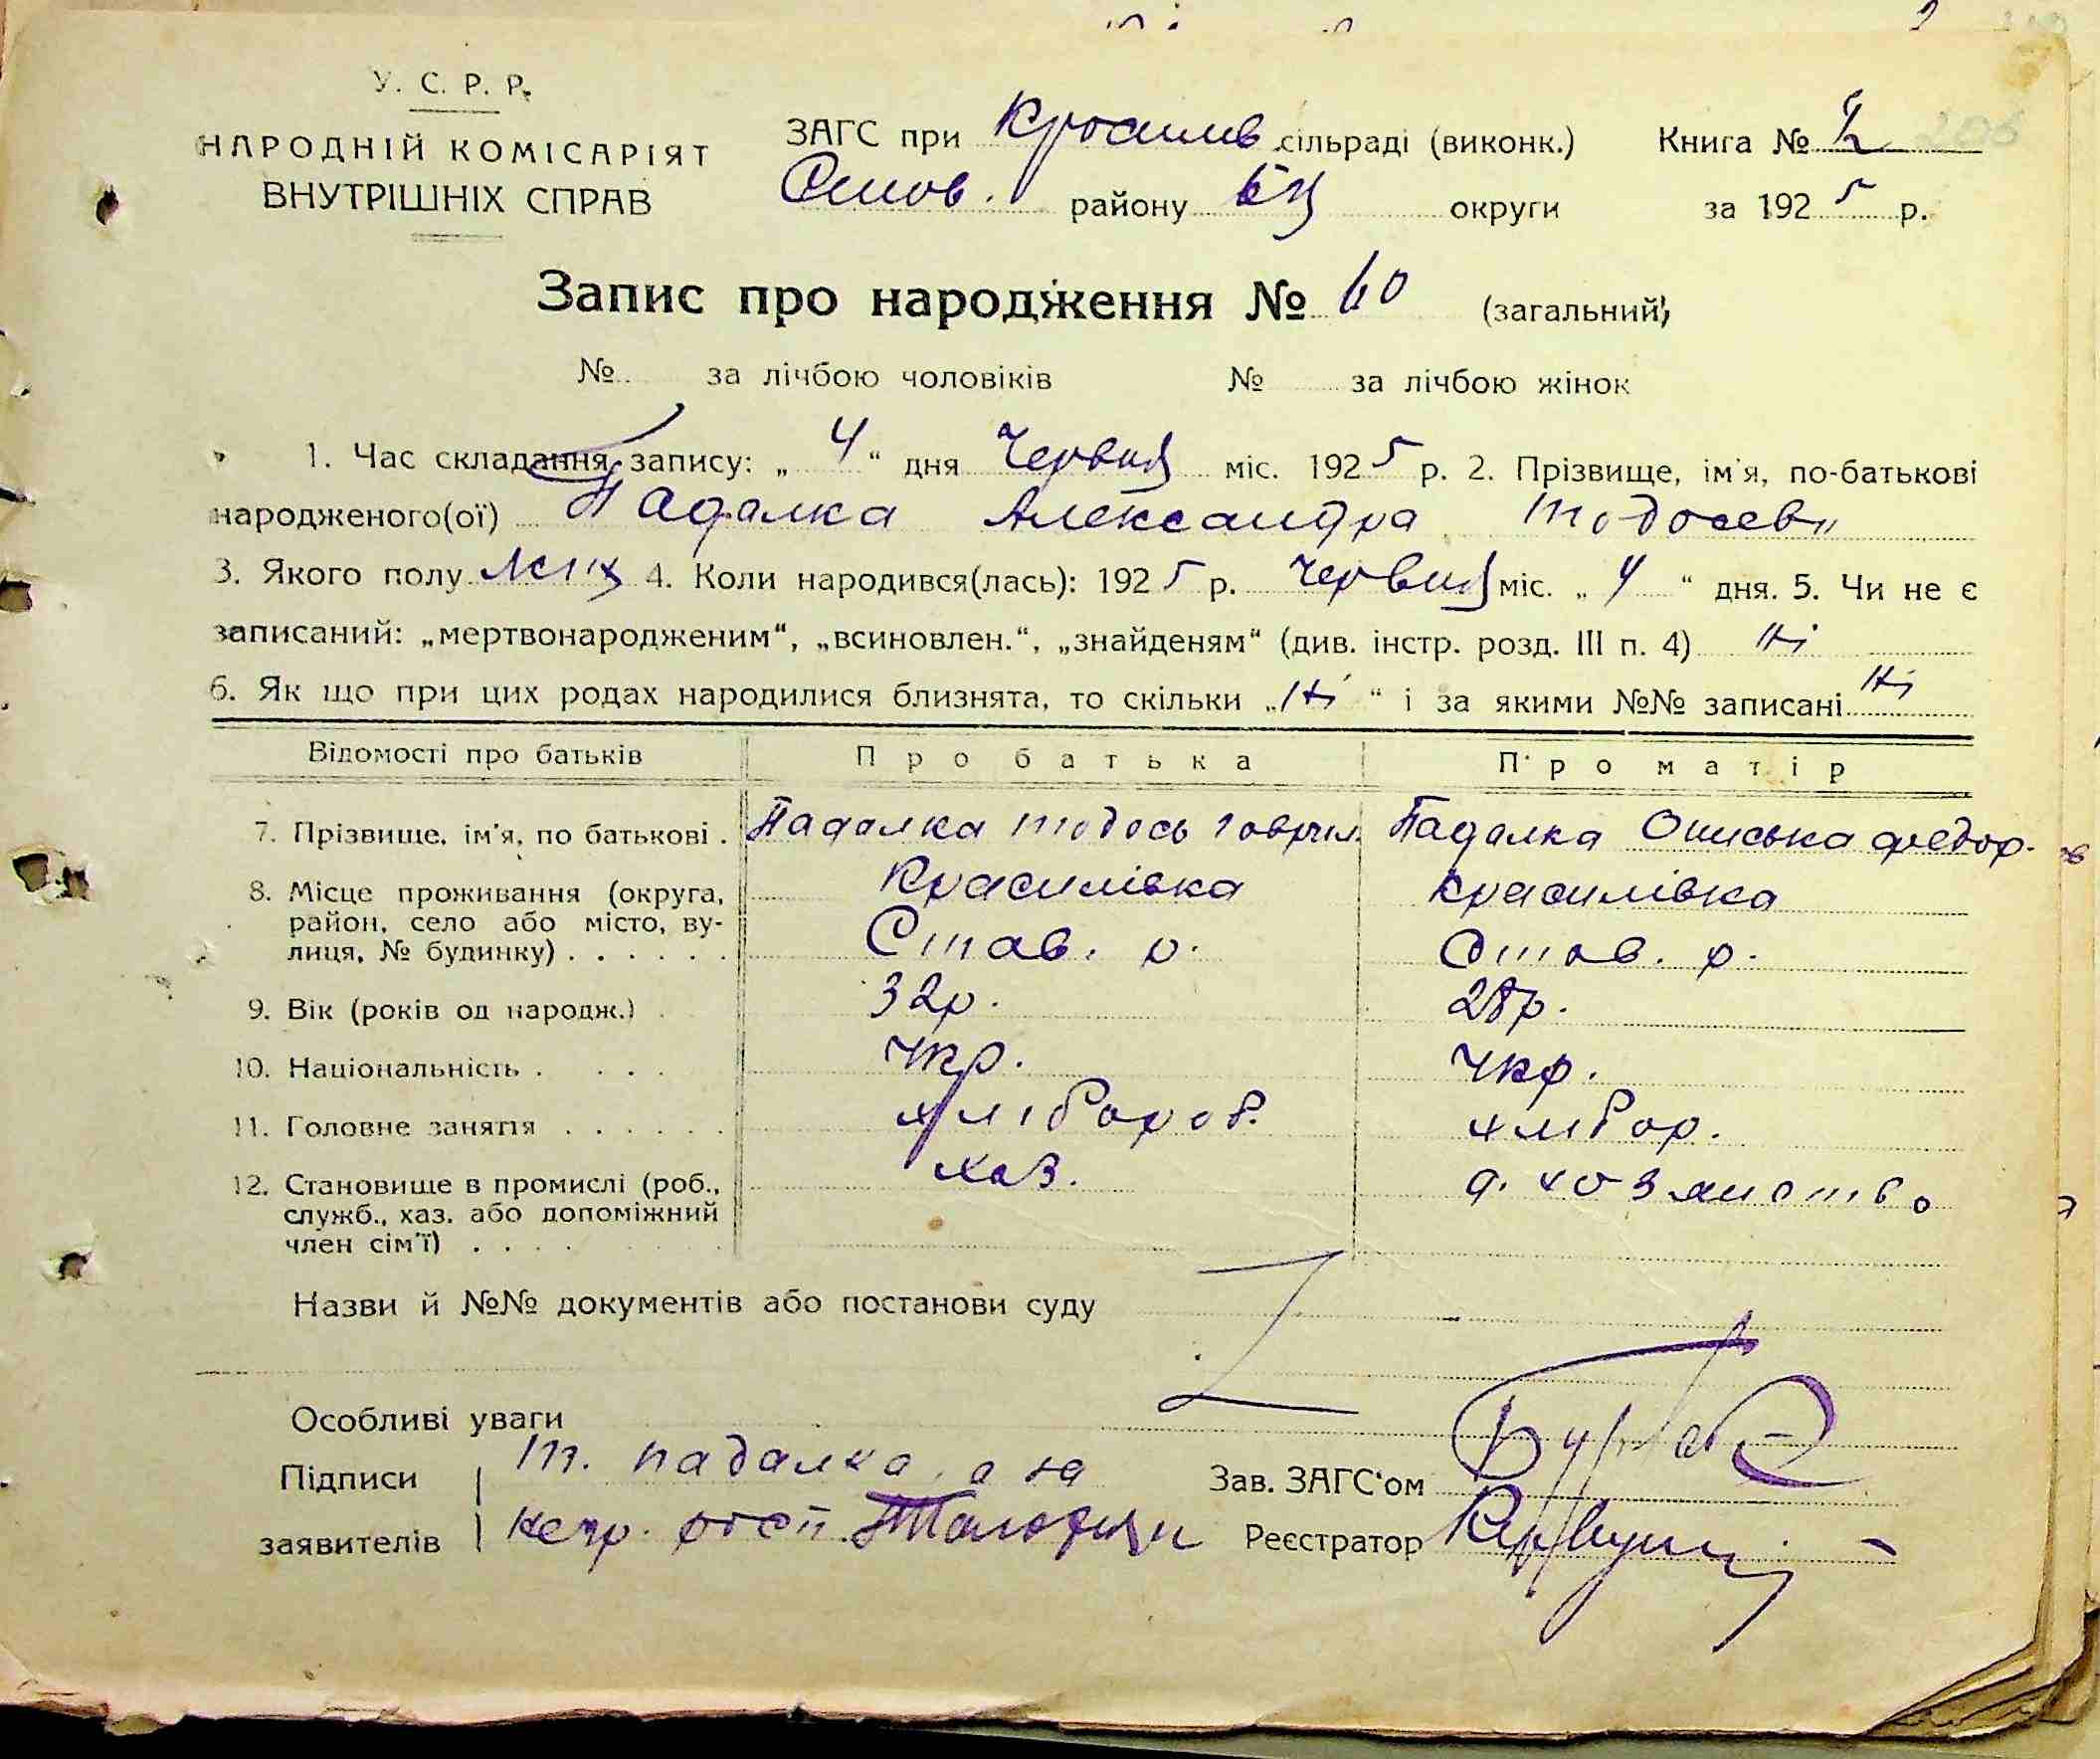 У. С. Р. Р.
НАРОДНІЙ КОМІСАРІЯТ
ВНУТРІШНІХ СПРАВ
ЗАГС при Красилів сільраді (виконк.) Книга № 2
Став. району БЦ округи за 1925 р.
Запис про народження № 60 (загальний)
№ за лічбою чоловіків № за лічбою жінок
1. Час складання запису: „ 4 “ дня Червня міс. 1925 р. 2. Прізвище, ім'я, по-батькові
народженого(ої) Падалка Александра Тодосев
3. Якого полу жін 4. Коли народився(лась): 1925 р. Червня міс. „ 4 “ дня. 5. Чи не є
записаний: „мертвонародженим“, „всиновлен.“, „знайденям“ (див. інстр. розд. III п. 4) Ні
6. Як що при цих родах народилися близнята, то скільки „Ні“ і за якими №№ записані Ні
Відомості про батьків Про батька Про матір
7. Прізвище, ім'я, по батькові . Падалка Тодось Гаврил. Падалка Описька Федор.
8. Місце проживання (округа, Красилівка Красилівка
район, село або місто, ву- Став. р. Став. р.
лиця, № будинку) . . . . . .
9. Вік (років од народж.) 32р. 28р.
10. Національність . . . . Укр. Укр.
11. Головне заняття . . . . . . хлібороб. хлібор.
12. Становище в промислі (роб., хаз. д. хозяиство
служб., хаз. або допоміжний
член сім'ї) . . . .
Назви й №№ документів або постанови суду
Особливі уваги
Підписи Т. Падалка, а за
заявителів непр.
Зав. ЗАГС'ом
Реєстратор